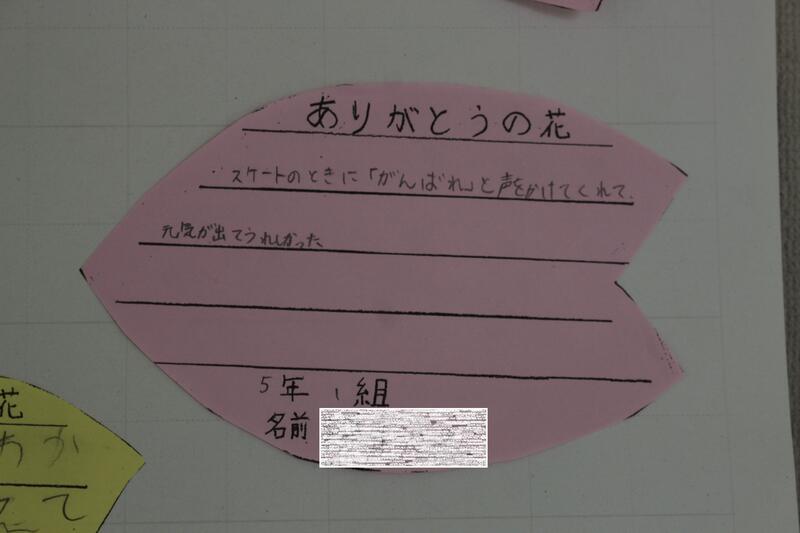 ありがとうの花
スケートのときに「がんばれ」と声をかけてくれて、
元気が出てうれしかった。
5年 1組
名前
花
わか
て